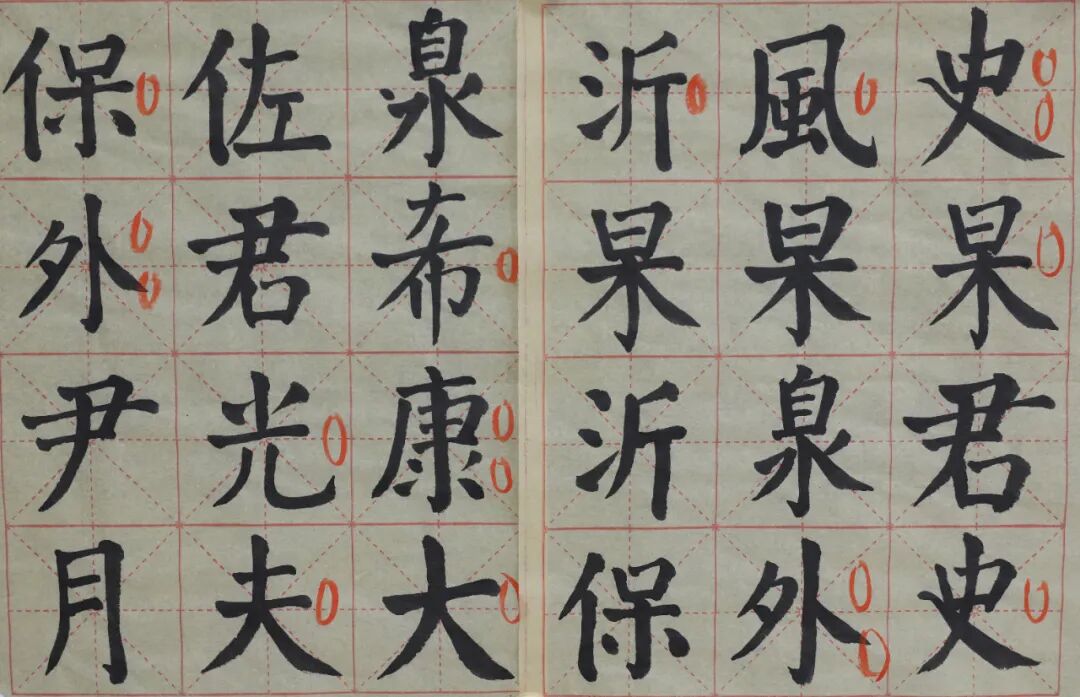 史杲君史
風杲泉外
沂杲沂保
泉希康大
佐君光夫
保外尹月